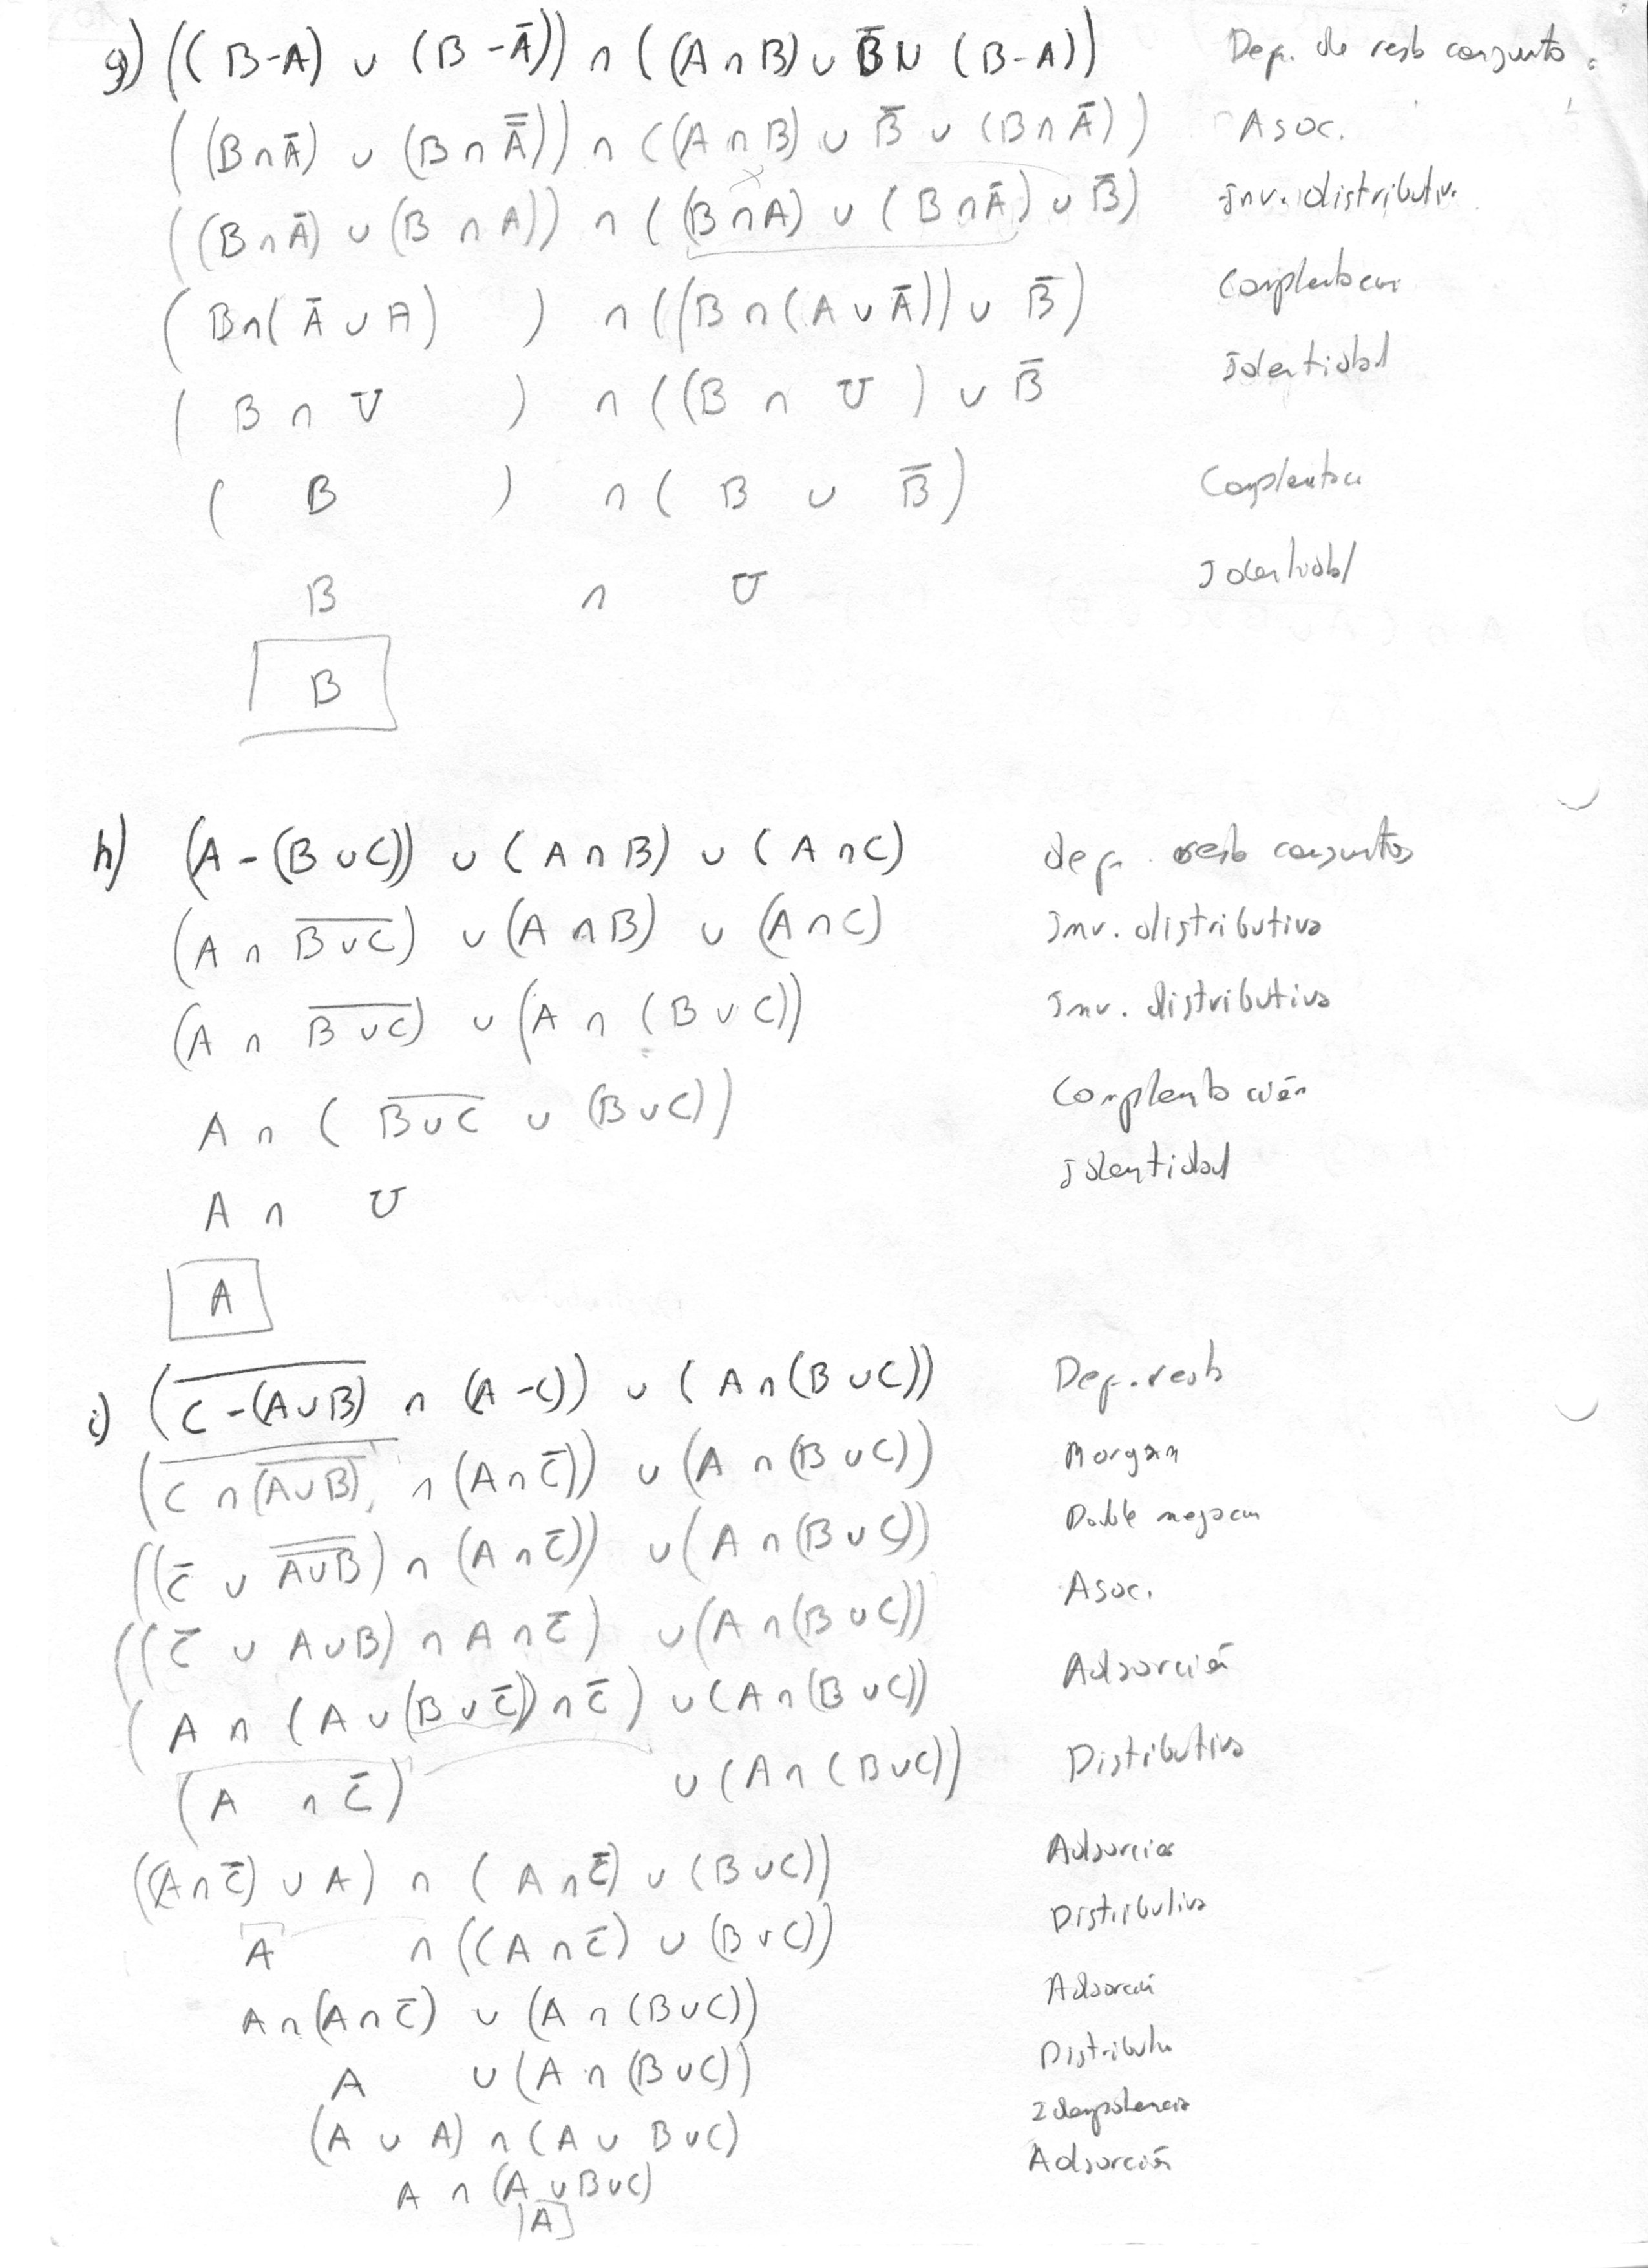 g) ((B-A) ∪ (B-Ā)) ∩ ((A∩B) ∪ B̄ ∪ (B-A)) Def. de resta conjunto
((B∩Ā) ∪ (B∩A̿)) ∩ ((A∩B) ∪ B̄ ∪ (B∩Ā)) Asoc.
((B∩Ā) ∪ (B∩A)) ∩ ((B∩A) ∪ (B∩Ā) ∪ B̄) Inv. distributiva
(B∩(Ā∪A)) ∩ ((B∩(A∪Ā)) ∪ B̄)
(B∩U) ∩ ((B∩U) ∪ B̄ Identidad
(B) ∩ (B ∪ B̄)
B ∩ U Identidad
B
h) (A-(B∪C)) ∪ (A∩B) ∪ (A∩C) def. resta conjuntos
(A ∩ \overline{B∪C}) ∪ (A∩B) ∪ (A∩C) Inv. distributiva
(A ∩ \overline{B∪C}) ∪ (A∩(B∪C)) Inv. distributiva
A ∩ (\overline{B∪C} ∪ (B∪C)) Complentación
A ∩ U Identidad
A
i) (\overline{C-(A∪B)} ∩ (A-C)) ∪ (A∩(B∪C)) Def. resta
(\overline{C∩\overline{(A∪B)}} ∩ (A∩C̄)) ∪ (A∩(B∪C)) Morgan
((C̄ ∪ \overline{\overline{A∪B}}) ∩ (A∩C̄)) ∪ (A∩(B∪C)) Doble negacn
((C̄ ∪ A∪B) ∩ A ∩ C̄) ∪ (A∩(B∪C)) Asoc.
(A ∩ (A∪(B∪C̄)) ∩ C̄) ∪ (A∩(B∪C)) Adsorción
(A ∩ C̄) ∪ (A∩(B∪C)) Distributiva
((A∩C̄) ∪ A) ∩ (A∩C̄) ∪ (B∪C)) Adsorcion
A ∩ ((A∩C̄) ∪ (B∪C)) Distributiva
A∩(A∩C̄) ∪ (A∩(B∪C))
A ∪ (A∩(B∪C))
(A∪A) ∩ (A∪B∪C) Idempotencia
A ∩ (A∪B∪C) Adsorción
A